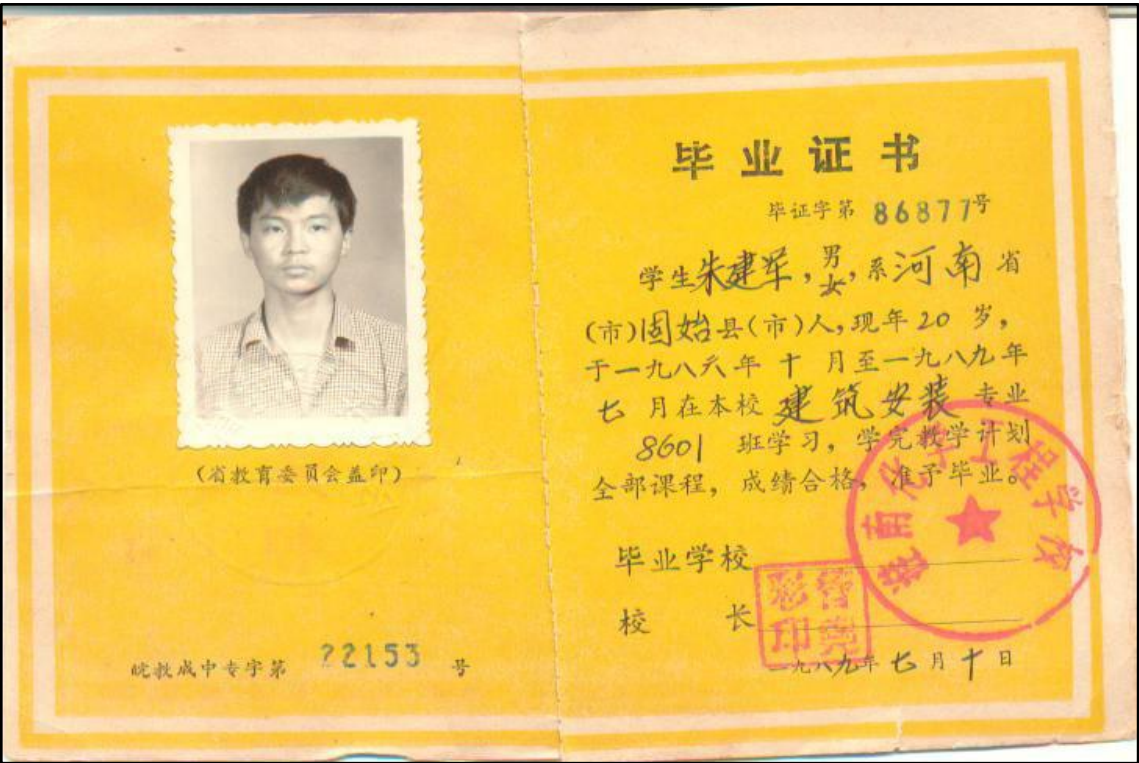 (省教育委员会盖印)
皖教成中专字第 22153 号
毕业证书
毕证字第 86877号
学生朱建军，男女，系河南省
(市)固始县(市)人，现年20岁，
于一九八六年十月至一九八九年
七月在本校建筑安装专业
8601班学习，学完教学计划
全部课程，成绩合格，准予毕业。
毕业学校
校长
一九八九年七月十日
淮南化学工程学校